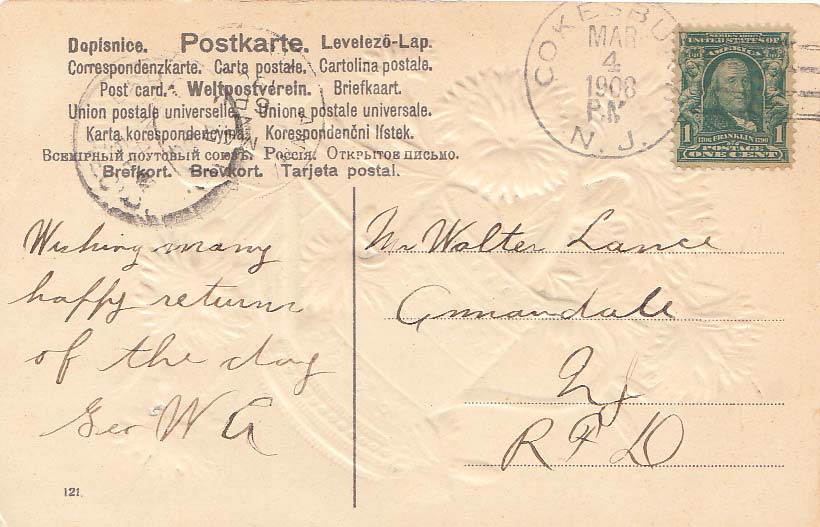 Dopisnice. Postkarte. Levelező-Lap.
Correspondenzkarte. Carte postale. Cartolina postale.
Post card. Weltpostverein. Briefkaart.
Union postale universelle. Unione postale universale.
Karta korespondencyjna. Korespondenční lístek.
Всемірный почтовый союзъ. Россія. Открытое письмо.
Brefkort. Brevkort. Tarjeta postal.
COKESBU
MAR
4
1908
P.M.
N. J.
UNITED STATES OF
AMERICA
1 FRANKLIN 1
POSTAGE
ONE CENT
Wishing many
happy returns
of the day
Geo W A
Mr Walter Lance
Annandale
NJ
R F D
121.